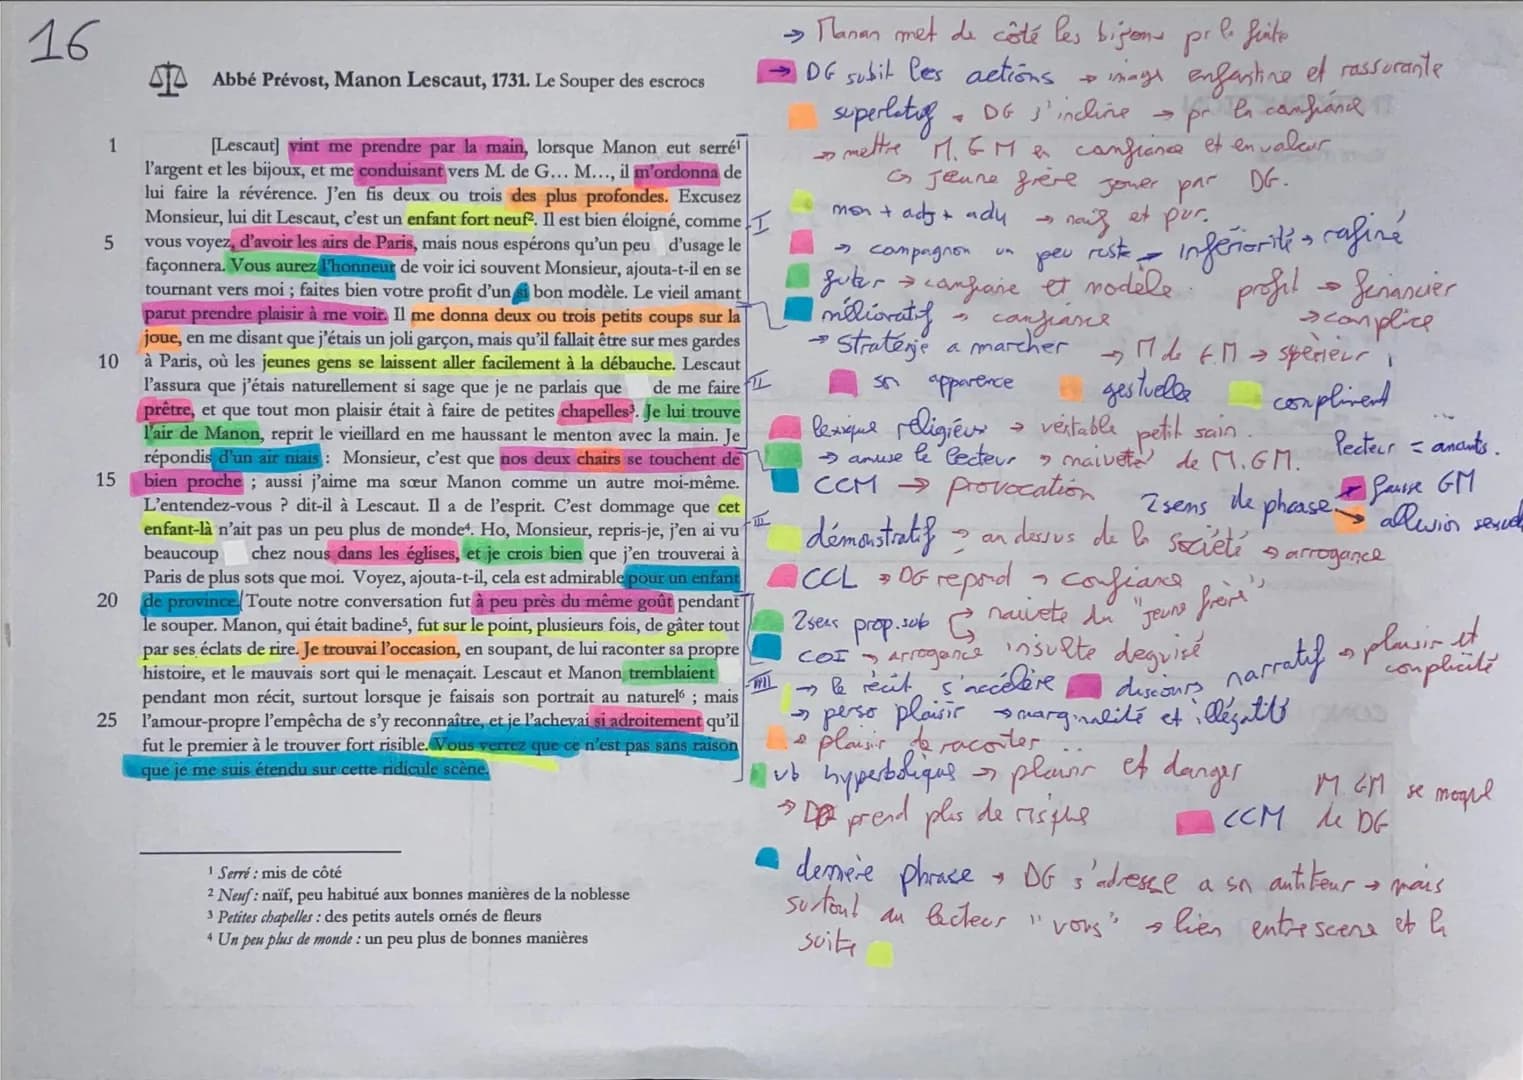 16
Abbé Prévost, Manon Lescaut, 1731. Le Souper des escrocs
1 [Lescaut] vint me prendre par la main, lorsque Manon eut serré¹
l'argent et les bijoux, et me conduisant vers M. de G... M..., il m'ordonna de
lui faire la révérence. J'en fis deux ou trois des plus profondes. Excusez
Monsieur, lui dit Lescaut, c'est un enfant fort neuf². Il est bien éloigné, comme
5 vous voyez, d'avoir les airs de Paris, mais nous espérons qu'un peu d'usage le
façonnera. Vous aurez l'honneur de voir ici souvent Monsieur, ajouta-t-il en se
tournant vers moi ; faites bien votre profit d'un si bon modèle. Le vieil amant
parut prendre plaisir à me voir. Il me donna deux ou trois petits coups sur la
joue, en me disant que j'étais un joli garçon, mais qu'il fallait être sur mes gardes
10 à Paris, où les jeunes gens se laissent aller facilement à la débauche. Lescaut
l'assura que j'étais naturellement si sage que je ne parlais que de me faire
prêtre, et que tout mon plaisir était à faire de petites chapelles³. Je lui trouve
l'air de Manon, reprit le vieillard en me haussant le menton avec la main. Je
répondis d'un air niais : Monsieur, c'est que nos deux chairs se touchent de
15 bien proche ; aussi j'aime ma sœur Manon comme un autre moi-même.
L'entendez-vous ? dit-il à Lescaut. Il a de l'esprit. C'est dommage que cet
enfant-là n'ait pas un peu plus de monde⁴. Ho, Monsieur, repris-je, j'en ai vu
beaucoup chez nous dans les églises, et je crois bien que j'en trouverai à
Paris de plus sots que moi. Voyez, ajouta-t-il, cela est admirable pour un enfant
20 de province. / Toute notre conversation fut à peu près du même goût pendant
le souper. Manon, qui était badine⁵, fut sur le point, plusieurs fois, de gâter tout
par ses éclats de rire. Je trouvai l'occasion, en soupant, de lui raconter sa propre
histoire, et le mauvais sort qui le menaçait. Lescaut et Manon tremblaient
pendant mon récit, surtout lorsque je faisais son portrait au naturel⁶ ; mais
25 l'amour-propre l'empêcha de s'y reconnaître, et je l'achevai si adroitement qu'il
fut le premier à le trouver fort risible. Vous verrez que ce n'est pas sans raison
que je me suis étendu sur cette ridicule scène.
¹ Serré : mis de côté
² Neuf : naïf, peu habitué aux bonnes manières de la noblesse
³ Petites chapelles : des petits autels ornés de fleurs
⁴ Un peu plus de monde : un peu plus de bonnes manières
→ Manon met de côté les bijoux pr la fuite
→ DG subit les actions → image enfantine et rassurante
superlatif → DG s'incline → pr la confiance
→ mettre M. GM en confiance et en valeur
↳ jeune frère jouer par DG.
I
nom + adj + adv → naïf et pur.
→ compagnon un peu rustre → infériorité → raffiné
futur → confiance et modèle. profit → financier
mélioratif → confiance → complice
→ stratégie a marcher → M de G.M → supérieur
II
son apparence gestuelle compliment
lexique religieux → véritable petit sain.
→ amuse le lecteur → naiveté de M. GM. lecteur = amants.
CCM → provocation 2 sens de phrase → fausse GM
→ allusion sexuel
III
démonstratif → au dessus de la société → arrogance
CCL → DG repond → confiance
2 sens prop. sub → naiveté du "jeune frère"
COI → arrogance insulte deguisé
IIII
→ le récit s'accélère discours narratif → plaisir et complicité
→ perso plaisir → marginalité et illégalité
→ plaisir de raconter
vb hyperbolique → plaisir et danger
→ DG prend plus de risque CCM M. GM se moque de DG
dernière phrase → DG s'adresse a son → mais
surtout au lecteur "vous" → lien entre scene et la
suite